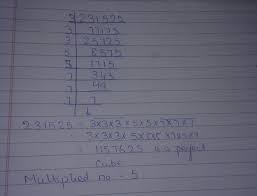 3 | 231525
3 | 77175
3 | 25725
5 | 8575
5 | 1715
7 | 343
7 | 49
7 | 7
231525 = 3x3x3x5x5x7x7x7
= 3x3x3x5x5x5x7x7x7
= 1157625 is a perfect
cube
Multiplied no = 5